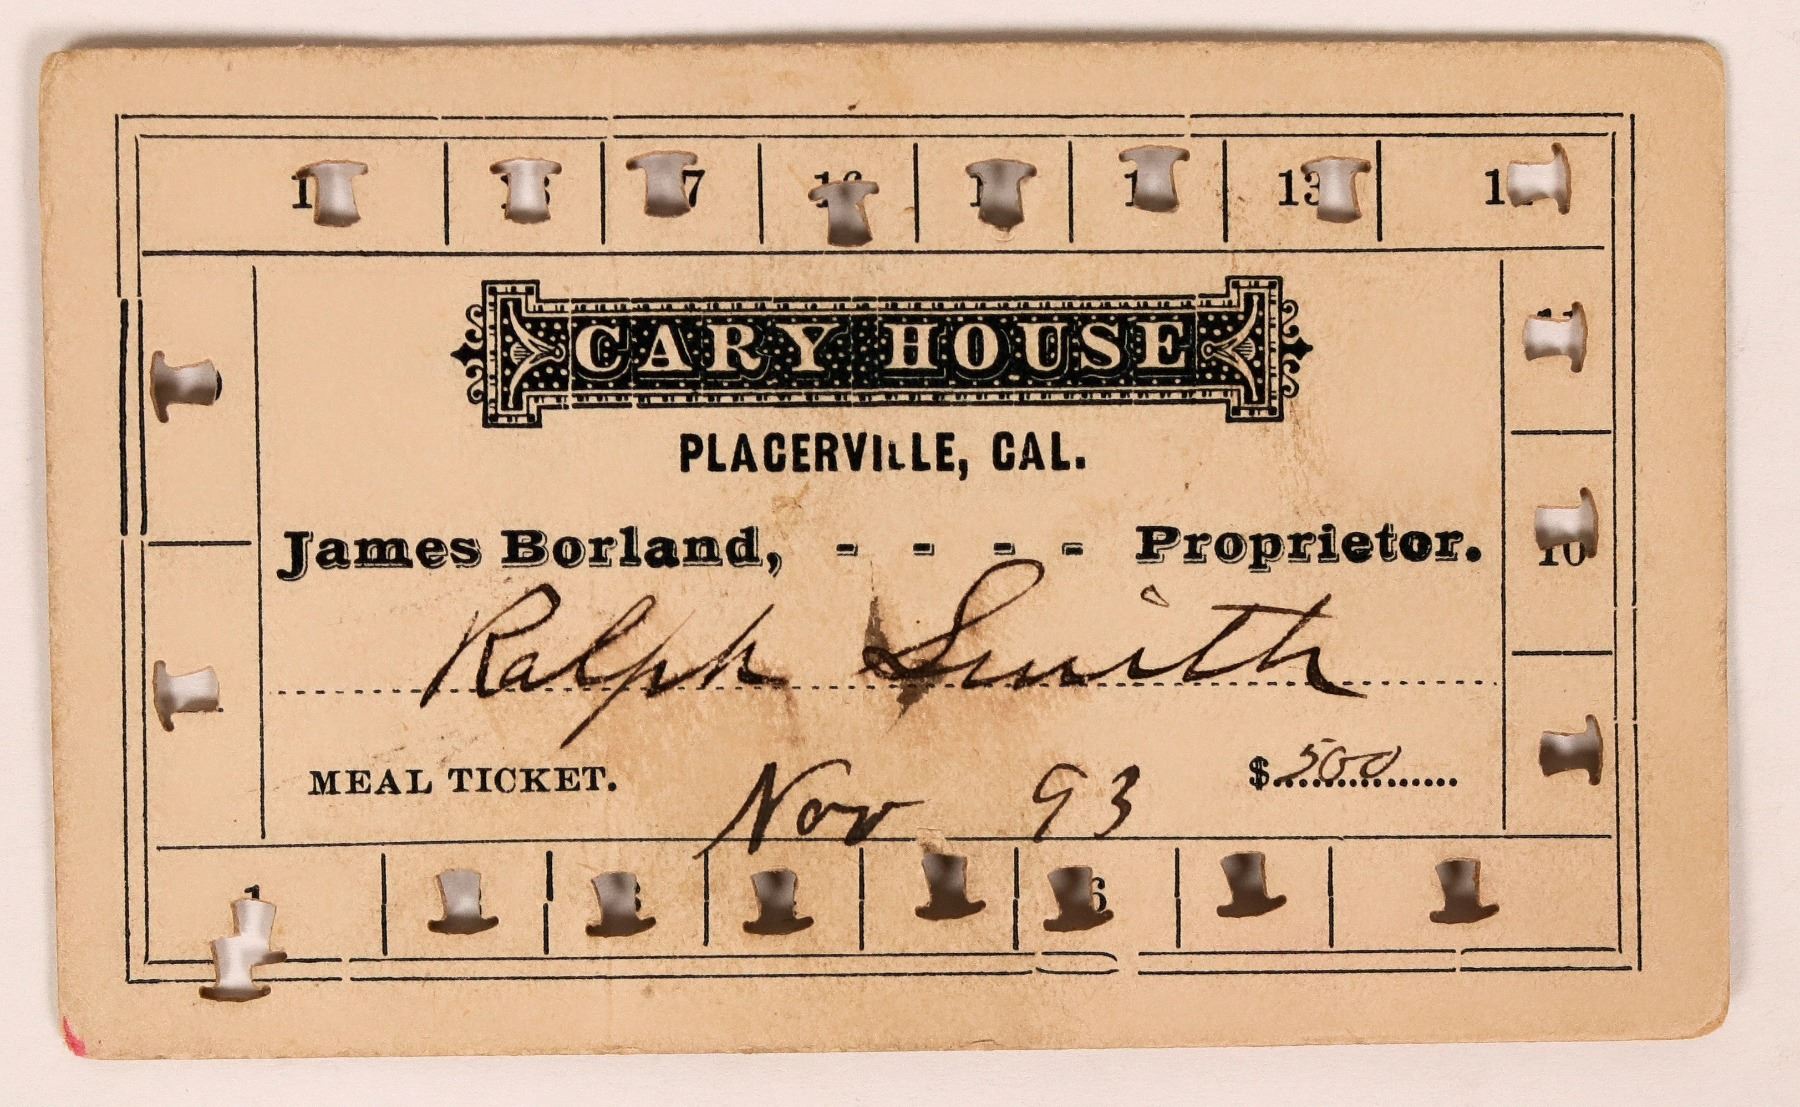 7
13
CARY HOUSE
PLACERVILLE, CAL.
James Borland, - - - - Proprietor.
10
Ralph Smith
MEAL TICKET. Nov 93 $ 500
1
6